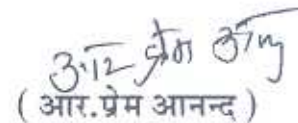 आर प्रेम आनन्द
( आर.प्रेम आनन्द )